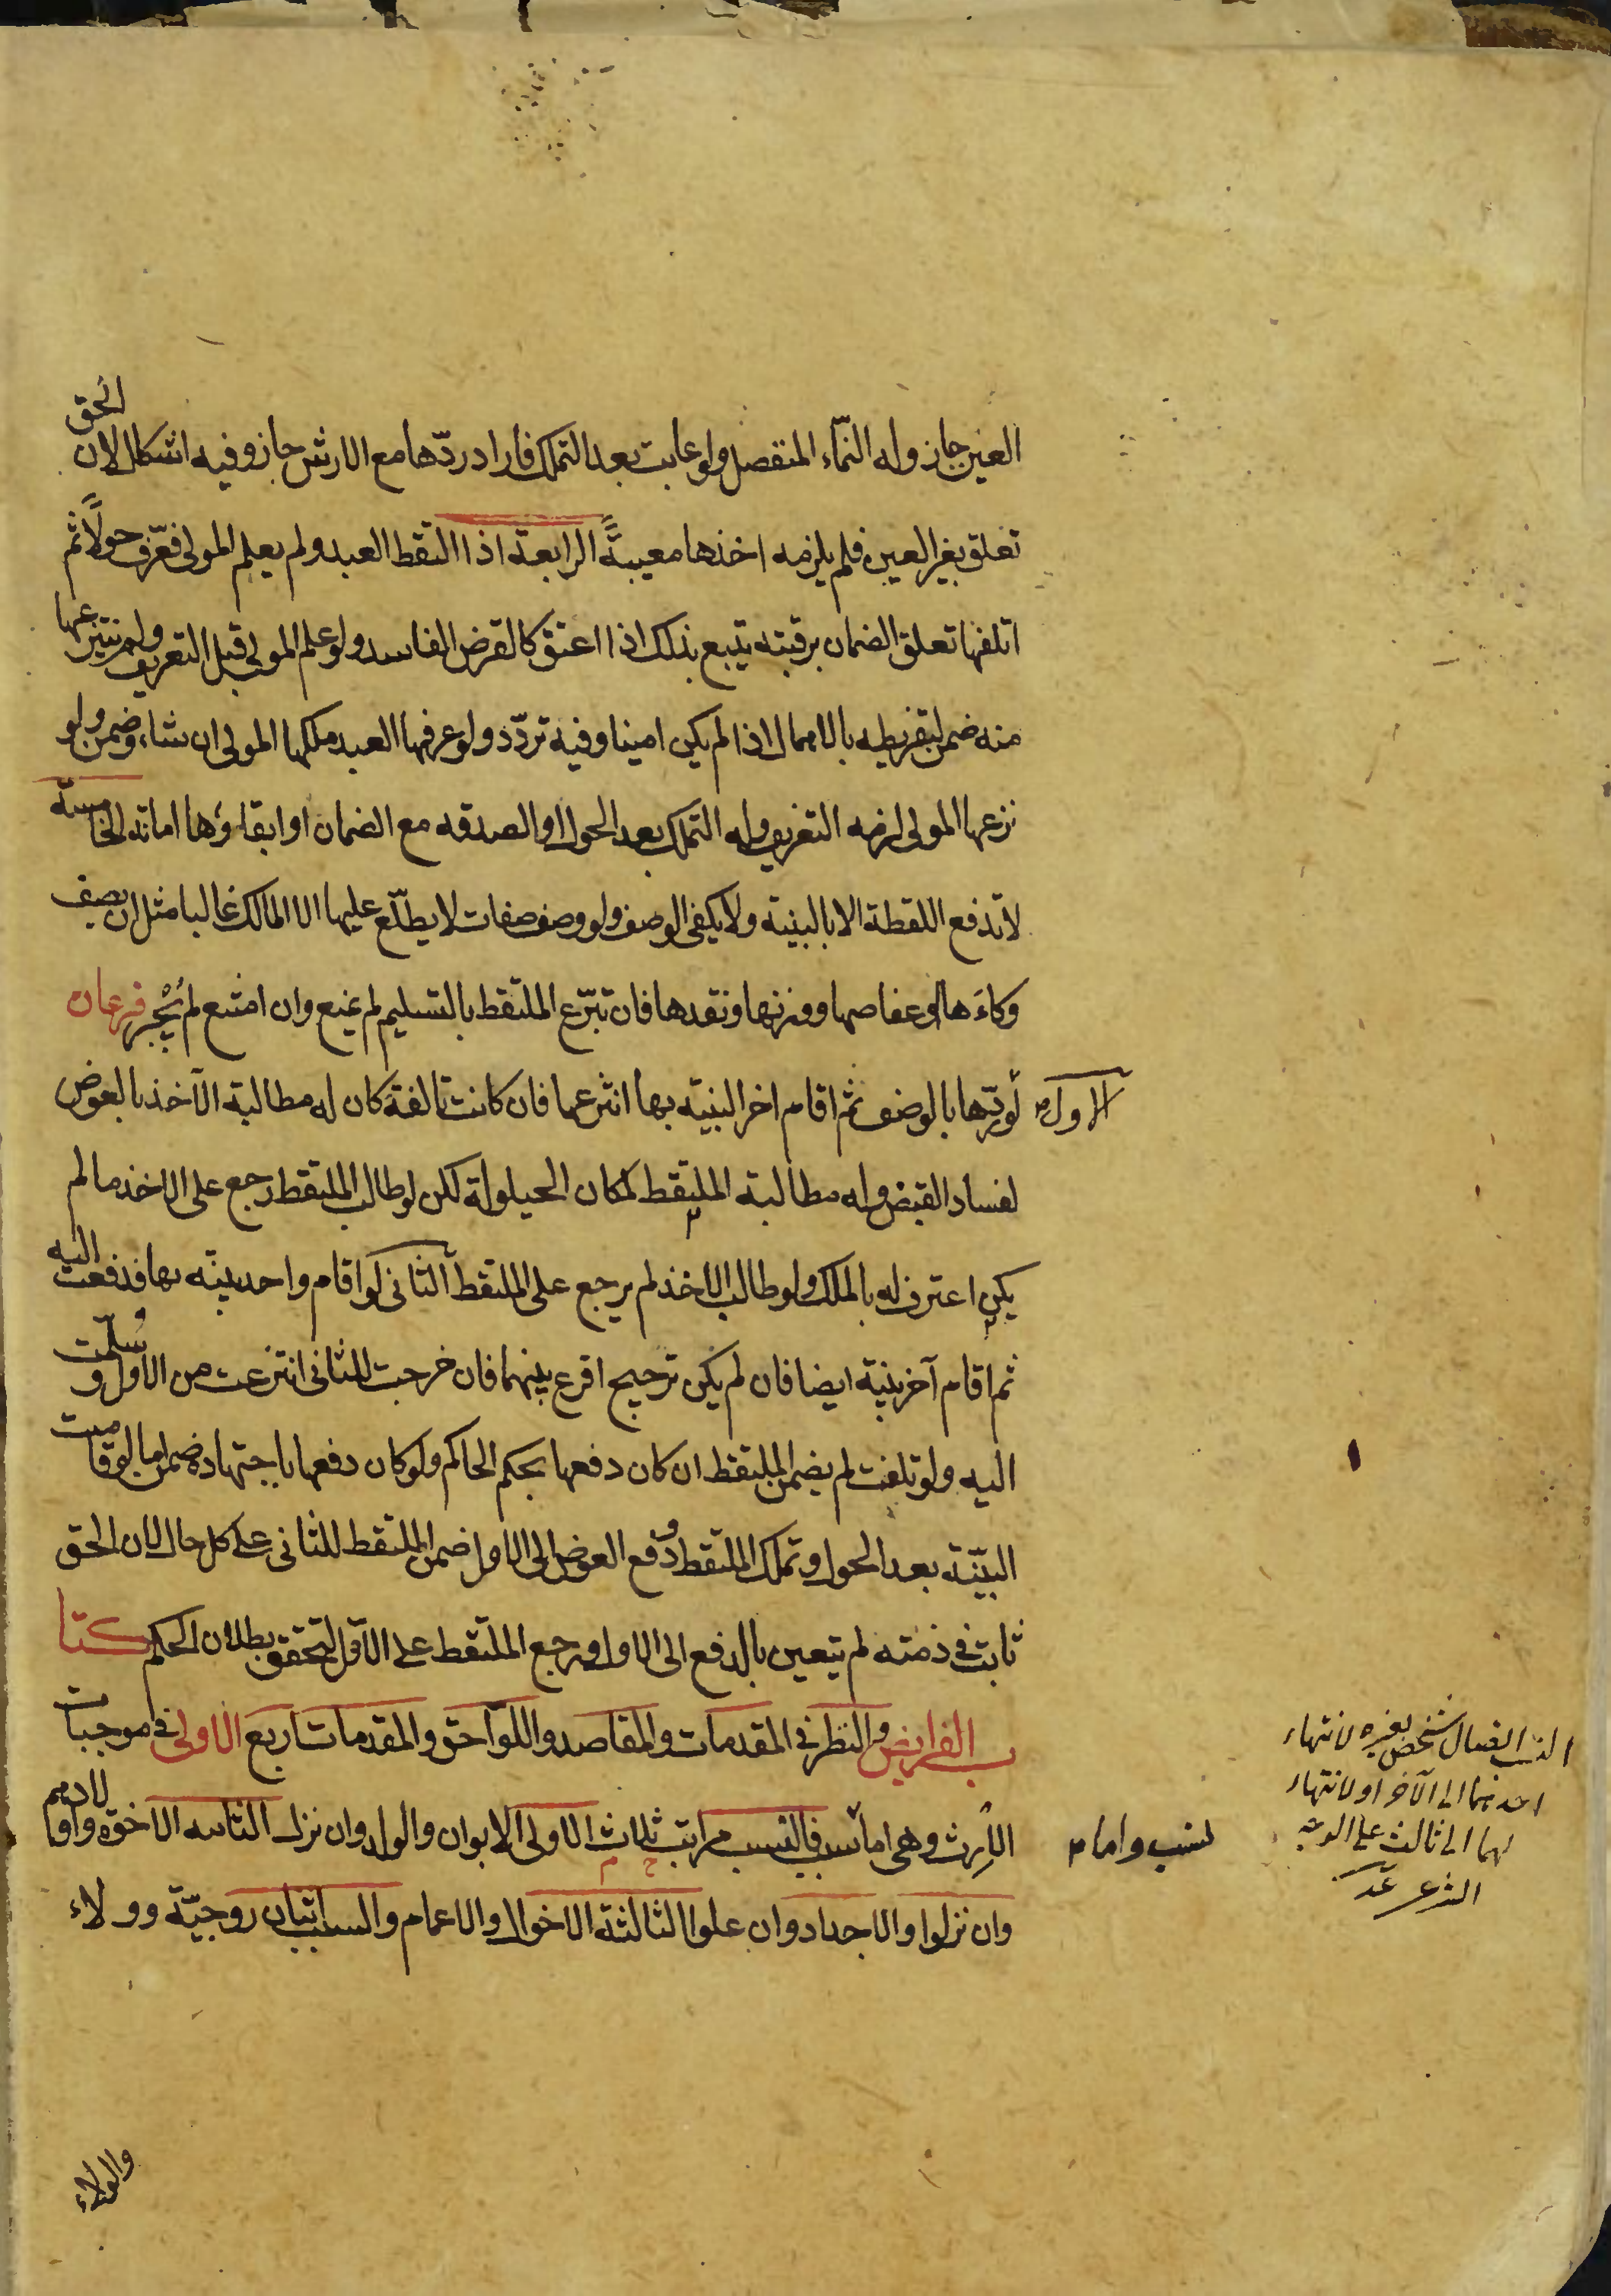 العين جاز وله النّماء المنفصل ولو عابت بعد التملك فأراد ردّها مع الارش جاز وفيه اشكال لان الحق
تعلق بغير العين فلم يلزمه اخذها معيبةً الرابعة اذا التقط العبد ولم يعلم المولى فعّرف حولًا ثم
اتلفها تعلق الضمان برقبته يتبع بذلك اذا اعتق كالقرض الفاسد ولو علم المولى قبل التعريف ولم ينتزعها
منه ضمن لتفريطه بالاهمال اذا لم يكن امينا وفيه تردّد ولو عرفها العبد ملكها المولى ان شاء وضمن ولو
نزعها المولى لزمه التعريف وله التملك بعد الحول او الصدقه مع الضمان او ابقاؤها امانه الخامسة
لا تدفع اللقطة الا بالبينة ولا يكفى الوصف ولو وصف صفات لا يطلّع عليها الا المالك غالبا مثل ان يصف
وكاءها وعفاصها ووزنها ونقدها فان تبرّع الملتقط بالتسليم لم يمنع وان امتنع لم يُجْبر فرعان
الاول لو ردّها بالوصف ثم اقام اخر البينة بها انتزعها فان كانت تالفة كان له مطالبة الآخذ بالعوض
لفساد القبض وله مطالبة الملتقط لمكان الحيلولة لكن لو طالب الملتقط رجع على الاخذ ما لم
يكن اعترف له بالملك ولو طالب الاخذ لم يرجع على الملتقط الثانى لو اقام واحد بينة بها فدفعت اليه
ثم اقام آخر بينة ايضا فان لم يكن ترجيح اقرع بينهما فان خرجت للثانى انتزعت من الاول و سُلّمت
اليه ولو تلفت لم يضمن الملتقط ان كان دفعها بحكم الحاكم ولو كان دفعها باجتهاده ضمن اما لو قامت
البيّنة بعد الحول وتملك الملتقط ودفع العوض الى الاول ضمن الملتقط للثانى على كل حال لان الحق
ثابت فى ذمته لم يتعين بالدفع الى الاول ورجع الملتقط على الاوّل لتحقق بطلان الحكم كتا
ب الفرايض والنظر فى المقدمات والمقاصد واللواحق والمقدمات اربع الاولى فى موجبات
الارث وهى اما نسب واما سبب فالنسب مراتب ثلاث الاولى الابوان والولد وان نزل الثانيه الاخوة واولادهم
وان نزلوا والاجداد وان علوا الثالثة الاخوال والاعمام والسبب اثنان زوجيّة وولاء
النسب اتصال شخص بغيره لانتهاء
احدهما الى الآخر او لانتهاء
لهما الى ثالث على الوجه
الشرعى
والولاء